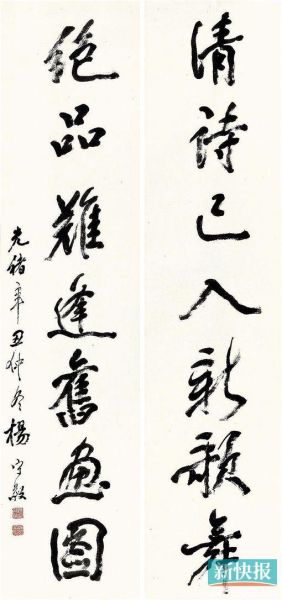 清詩已入新歌舞
絕品難逢舊畫圖
光緒辛丑仲冬楊守敬
新快报